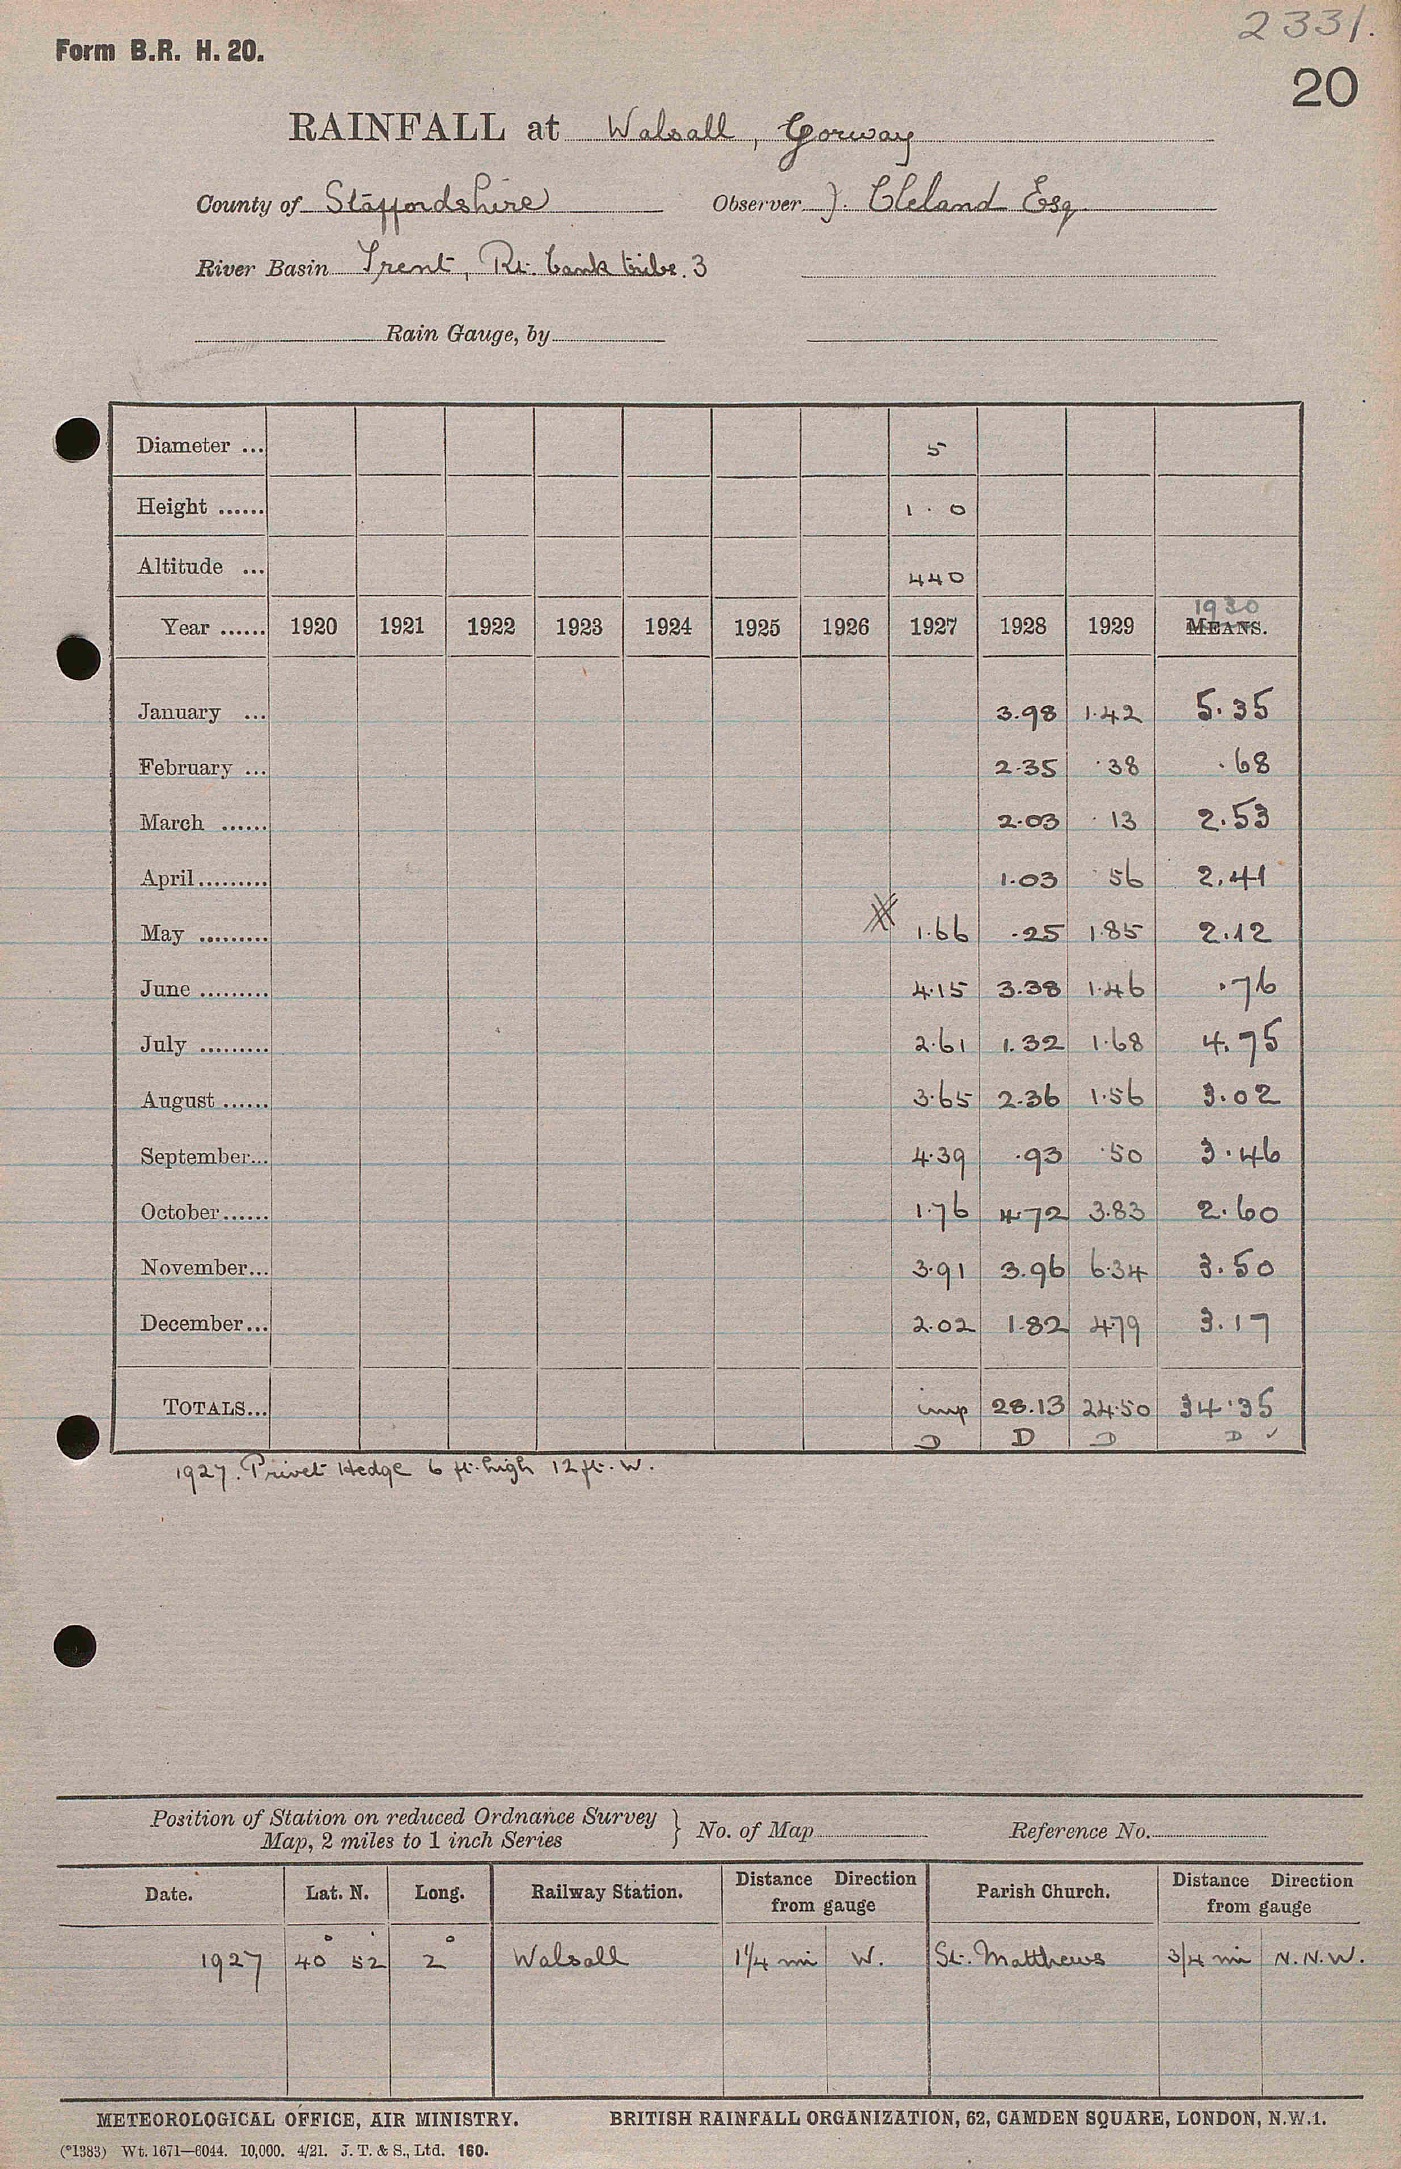 2331.
Form B.R. H. 20.
20
RAINFALL at Walsall, Gorway
County of Staffordshire Observer J. Cleland Esq
River Basin Trent, Rt. bank tribs. 3
Rain Gauge, by
Diameter ... 5
Height ...... 1 . 0
Altitude ... 440
Year ...... 1920 1921 1922 1923 1924 1925 1926 1927 1928 1929 1930 MEANS.
January ... 3.98 1.42 5.35
February ... 2.35 .38 .68
March ...... 2.03 .13 2.53
April......... 1.03 .56 2.41
May ......... 1.66 .25 1.85 2.12
June ......... 4.15 3.38 1.46 .76
July ......... 2.61 1.32 1.68 4.75
August ...... 3.65 2.36 1.56 3.02
September... 4.39 .93 .50 3.46
October...... 1.76 4.72 3.83 2.60
November... 3.91 3.96 6.34 3.50
December... 2.02 1.82 4.79 3.17
TOTALS... imp 28.13 24.50 34.35
D D D D ✓
1927. Privet Hedge 6 ft. high 12 ft. W.
Position of Station on reduced Ordnance Survey
Map, 2 miles to 1 inch Series } No. of Map Reference No.
Date. Lat. N. Long. Railway Station. Distance Direction from gauge Parish Church. Distance Direction from gauge
1927 40° 52' 2° Walsall 1¼ mi W. St. Matthews ¾ mi N.N.W.
METEOROLOGICAL OFFICE, AIR MINISTRY. BRITISH RAINFALL ORGANIZATION, 62, CAMDEN SQUARE, LONDON, N.W.1.
(*1383) Wt. 1671—6044. 10,000. 4/21. J. T. & S., Ltd. 160.